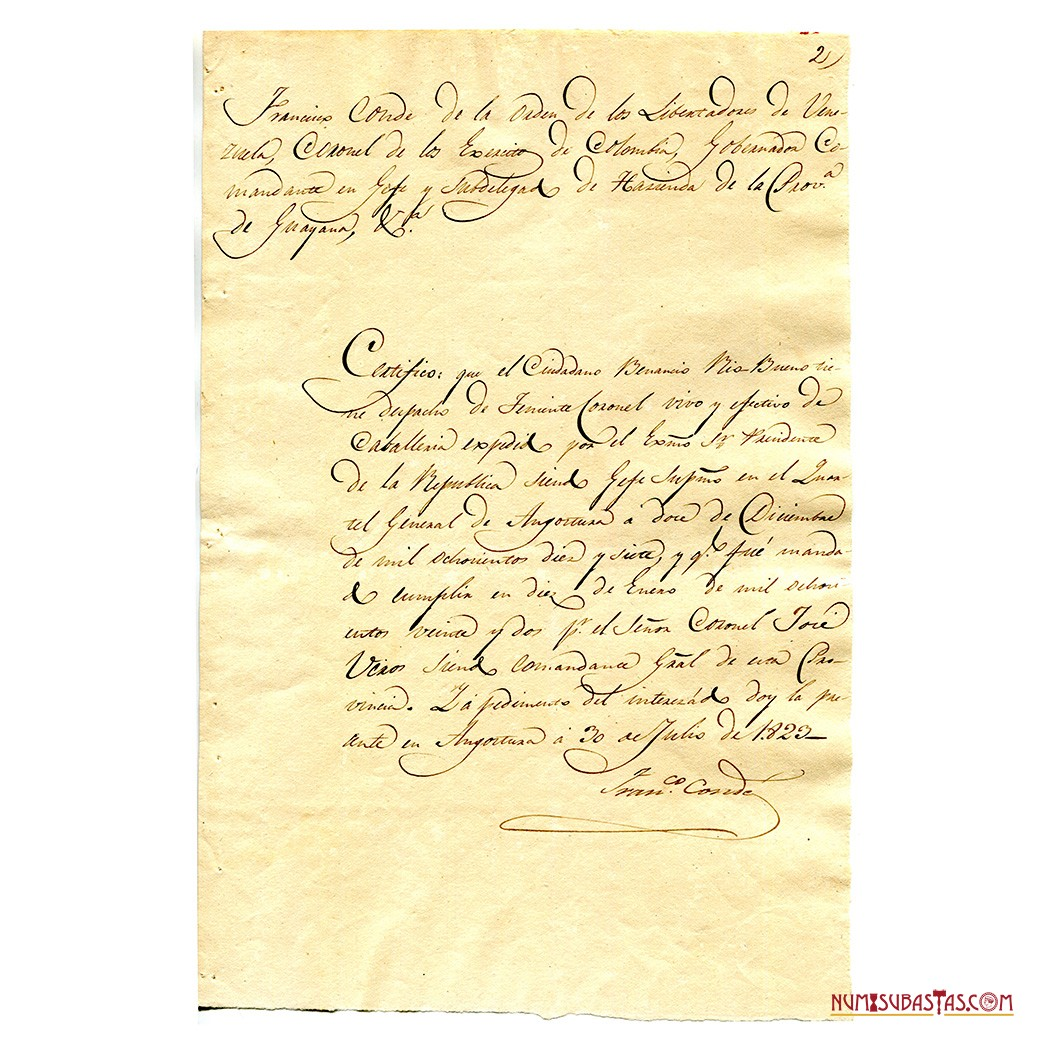 2)
Francisco Conde de la Orden de los Libertadores de Vene-
zuela, Coronel de los Exercitos de Colombia, Gobernador Co-
mandante en Gefe y Subdelegado de Hasienda de la Prov.a
de Guayana, &.a
Certifico: que el Ciudadano Benancio Rio Bueno tie-
ne despacho de Teniente Coronel vivo y efectivo de
Caballeria expedido por el Exmo Sr. Presidente
de la Republica siendo Gefe Supmo en el Quar-
tel General de Angostura a doce de Diciembre
de mil ochosientos diez y siete, y q.e fué manda-
do cumplir en diez de Enero de mil ochosi-
entos veinte y dos pr. el Señor Coronel José
Veros siendo comandante Gral de esta Pro-
vincia. Y á pedimento del interezádo doy la pre-
sente en Angostura á 30 de Julio de 1823
Fran.co Conde
NUMISUBASTAS.COM